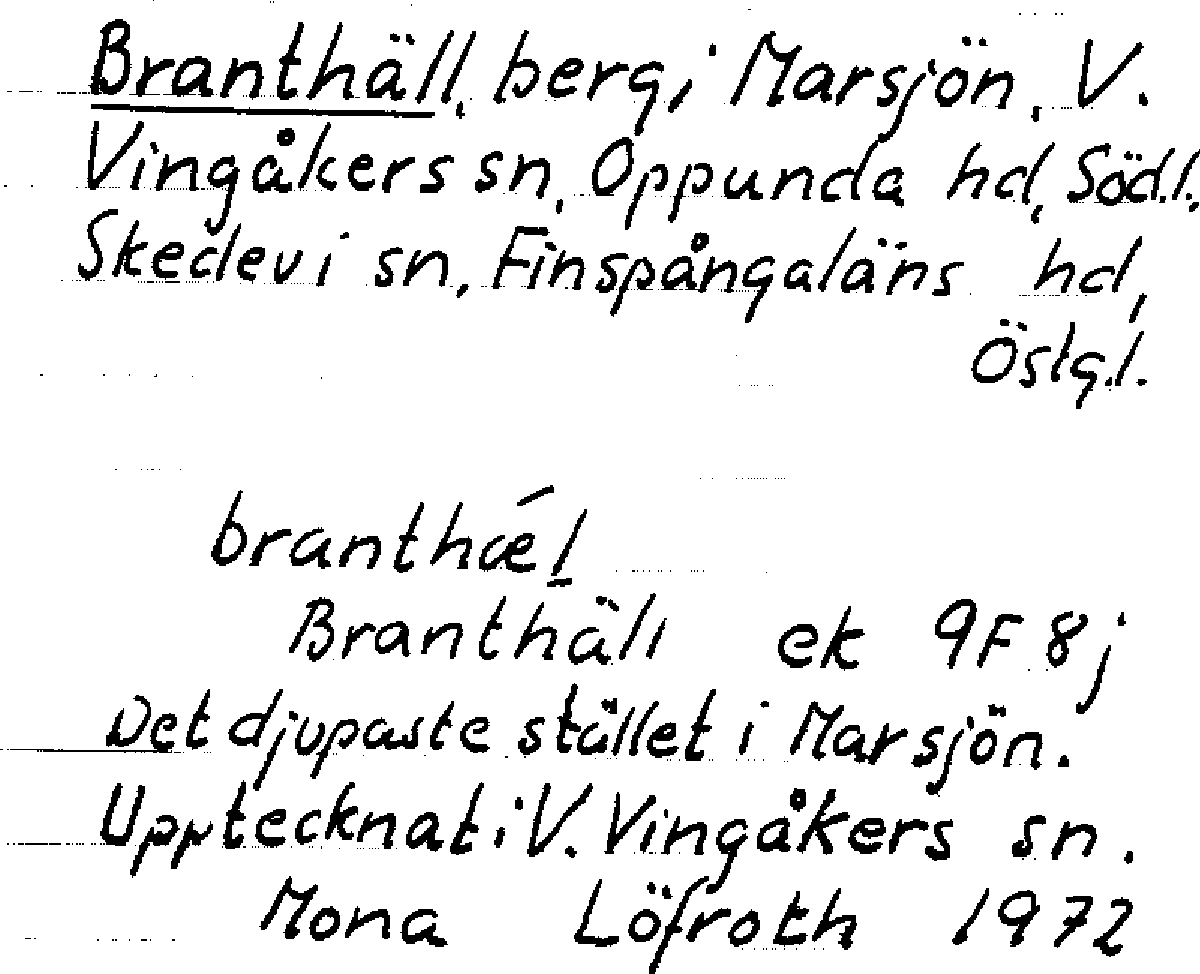 Branthäll, berg, i Marsjön, V.
Vingåkers sn, Oppunda hd, Södl.
Skedevi sn, Finspångaläns hd,
Östg.l.
branthǽl̲
Branthäll ek 9F 8j
Det djupaste stället i Marsjön.
Upptecknat i V. Vingåkers sn.
Mona Löfroth 1972